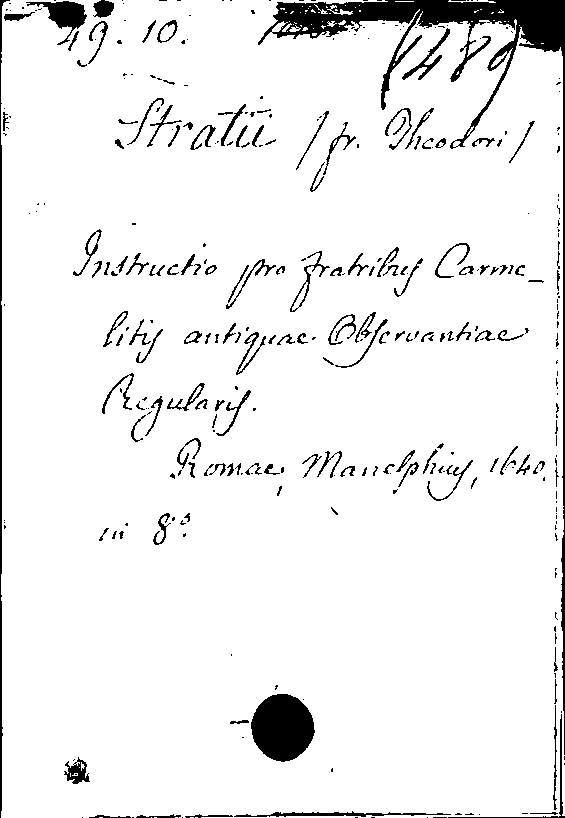 49. 10.
(489)
Stratii (fr. Theodori)
Instructio pro fratribus Carme-
litis antiquae Observantiae
Regularis.
Romae, Manelphius, 1640.
in 8º.